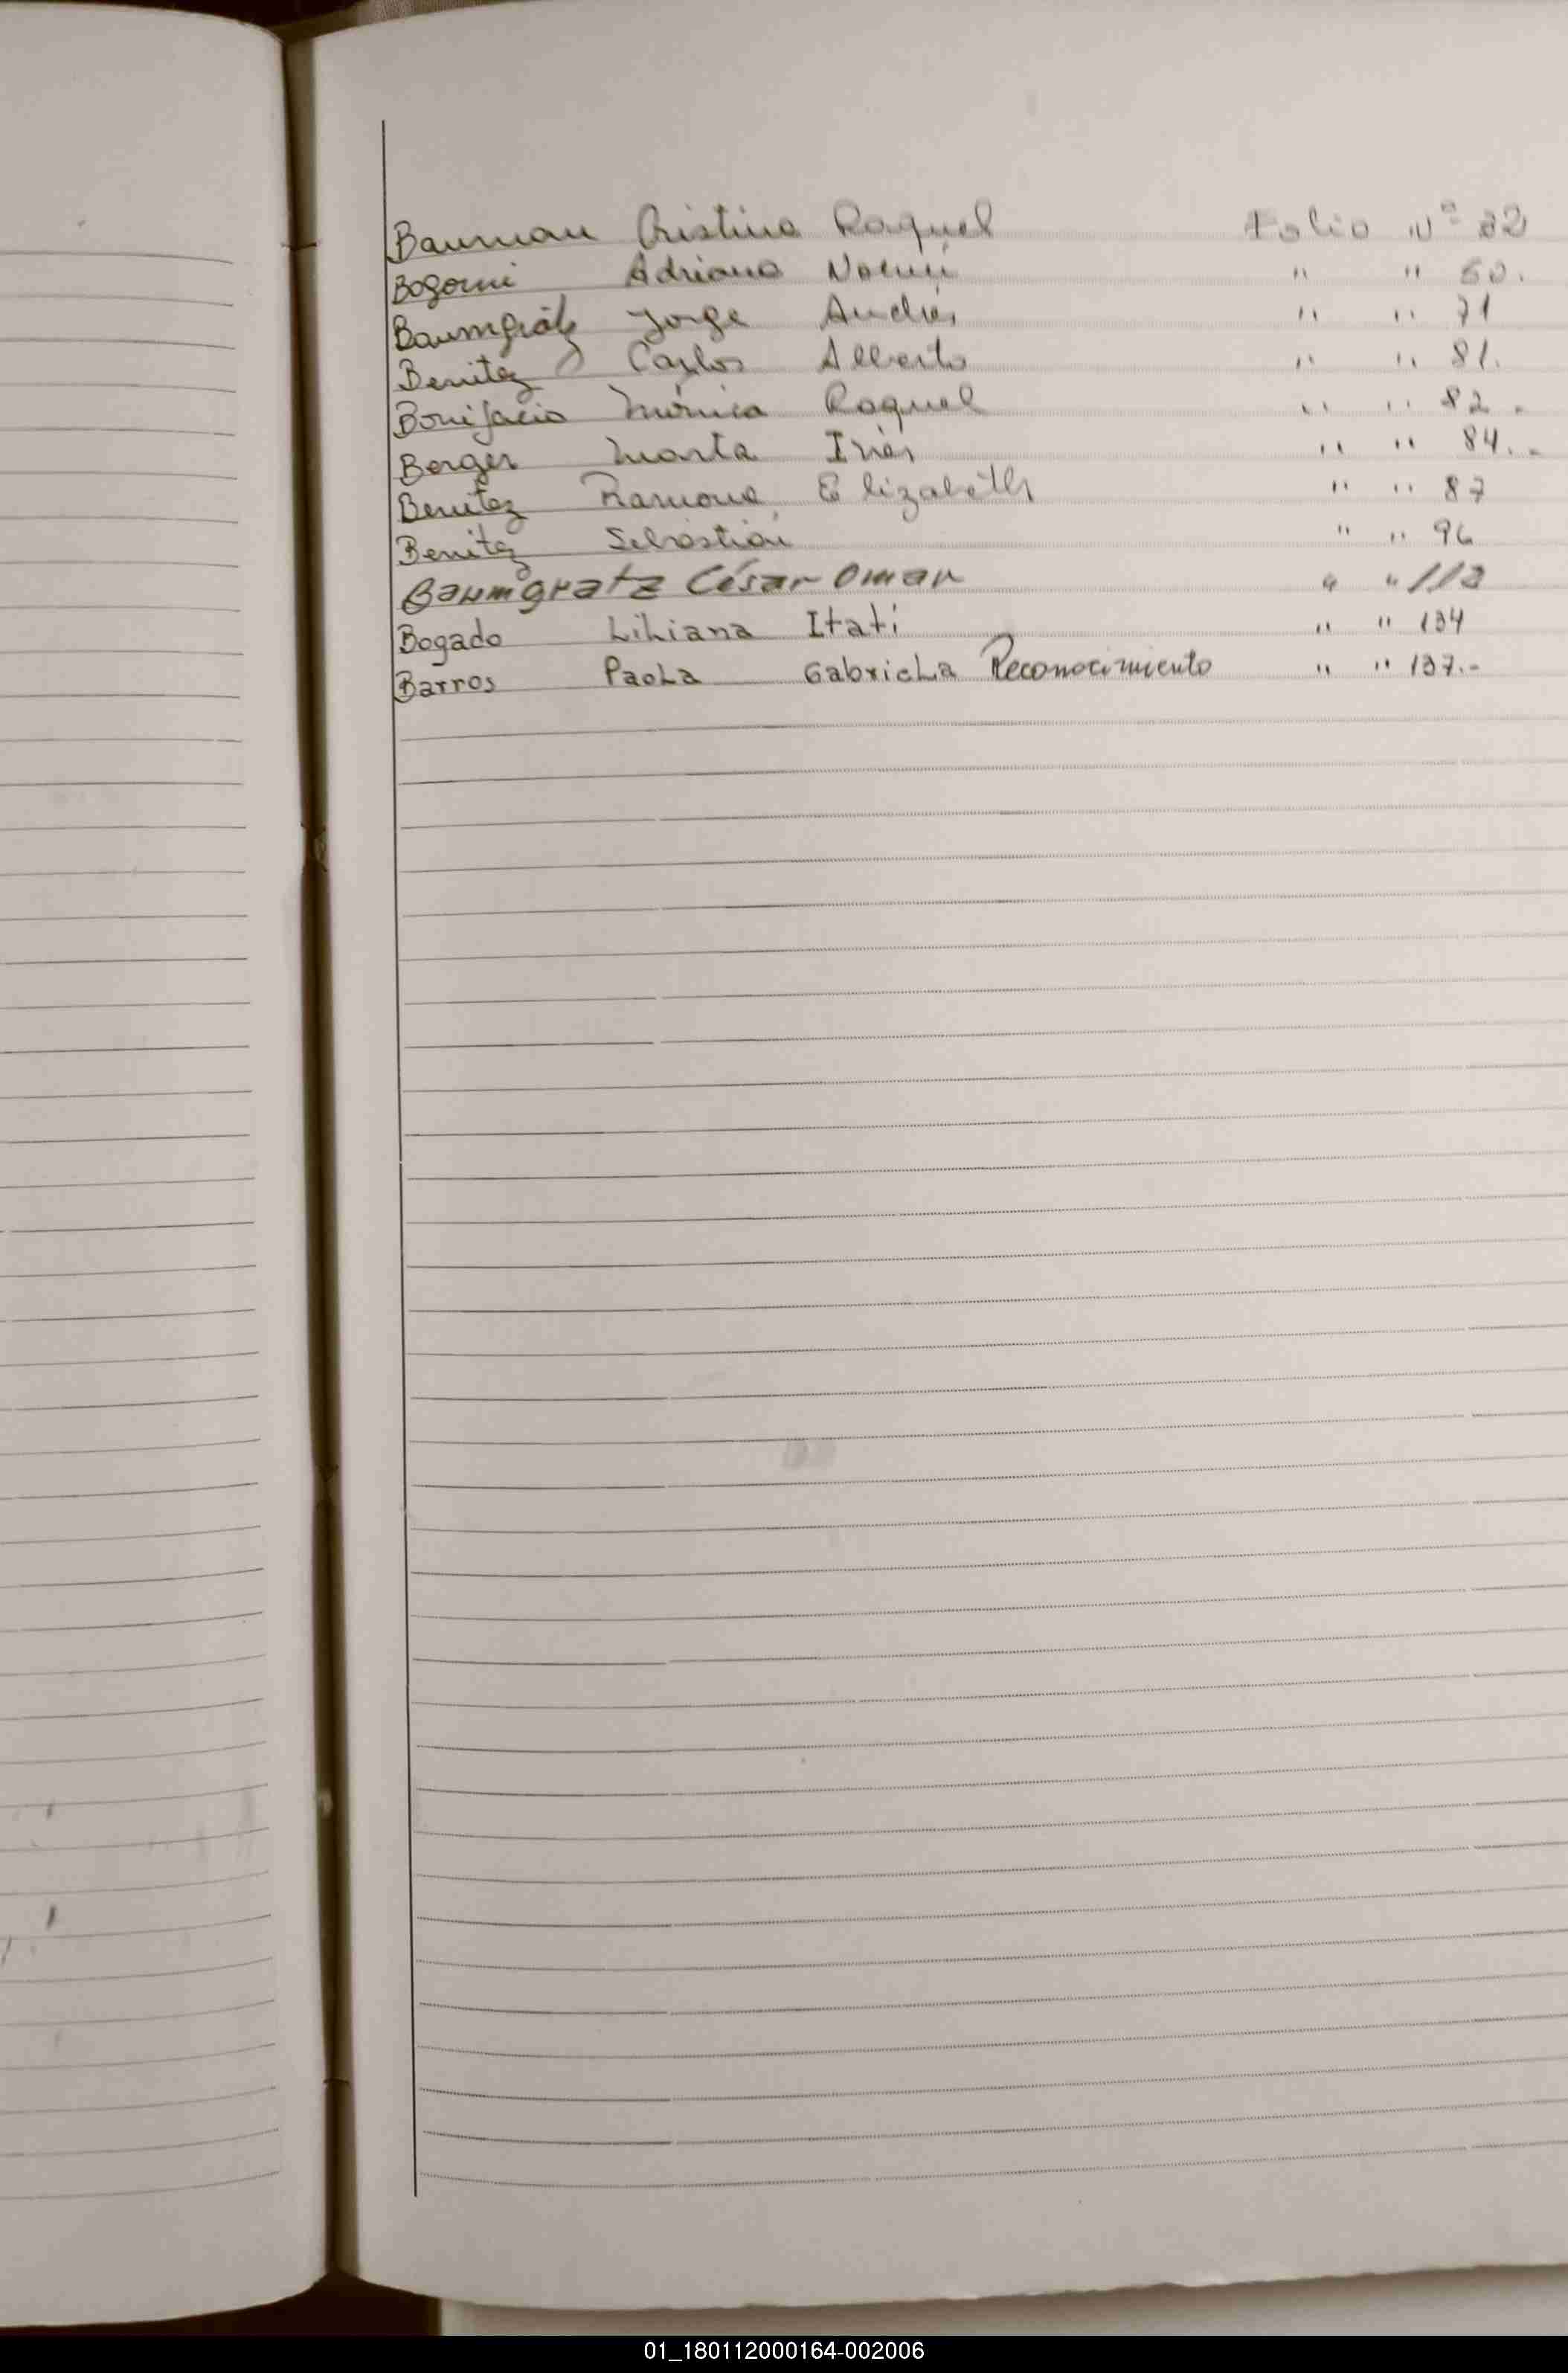 Bauman Cristina Raquel Folio Nº 32
Bogorni Adriana Noemi " " 60.
Baumgratz Jorge Andrés " " 71
Benitez Carlos Alberto " " 81.
Bonifacio Mónica Raquel " " 82.
Berger Marta Inés " " 84.-
Benitez Ramona Elizabeth " " 87
Benitez Sebastián " " 96
Baumgratz César Omar " " 112
Bogado Liliana Itatí " " 134
Barros Paola Gabriela Reconocimiento " " 137.-
01_180112000164-002006